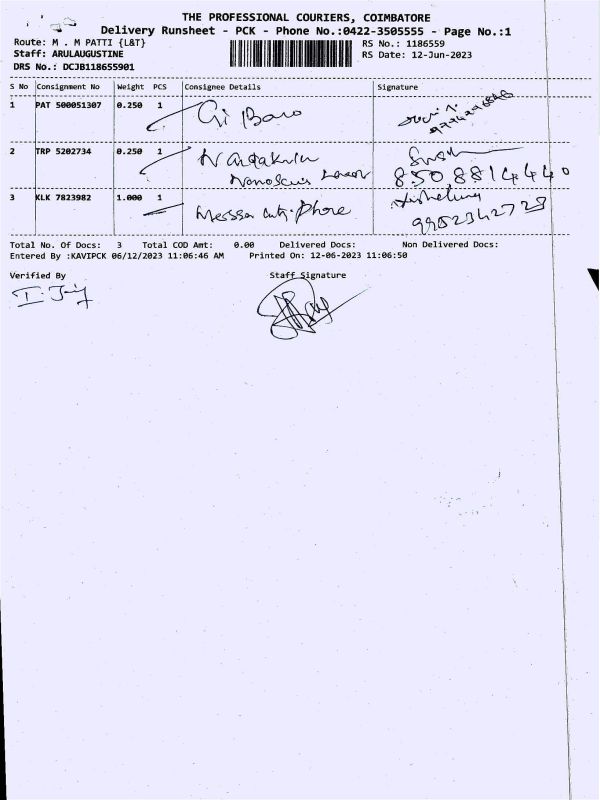 THE PROFESSIONAL COURIERS, COIMBATORE
Delivery Runsheet - PCK - Phone No.:0422-3505555 - Page No.:1
Route: M . M PATTI {L&T}
RS No.: 1186559
Staff: ARULAUGUSTINE
RS Date: 12-Jun-2023
DRS No.: DCJB118655901
S No Consignment No Weight PCS Consignee Details Signature
1 PAT 500051307 0.250 1
2 TRP 5202734 0.250 1
8508814440
3 KLK 7823982 1.000 1 Phore
9902342723
Total No. Of Docs: 3 Total COD Amt: 0.00 Delivered Docs: Non Delivered Docs:
Entered By :KAVIPCK 06/12/2023 11:06:46 AM Printed On: 12-06-2023 11:06:50
Verified By Staff Signature